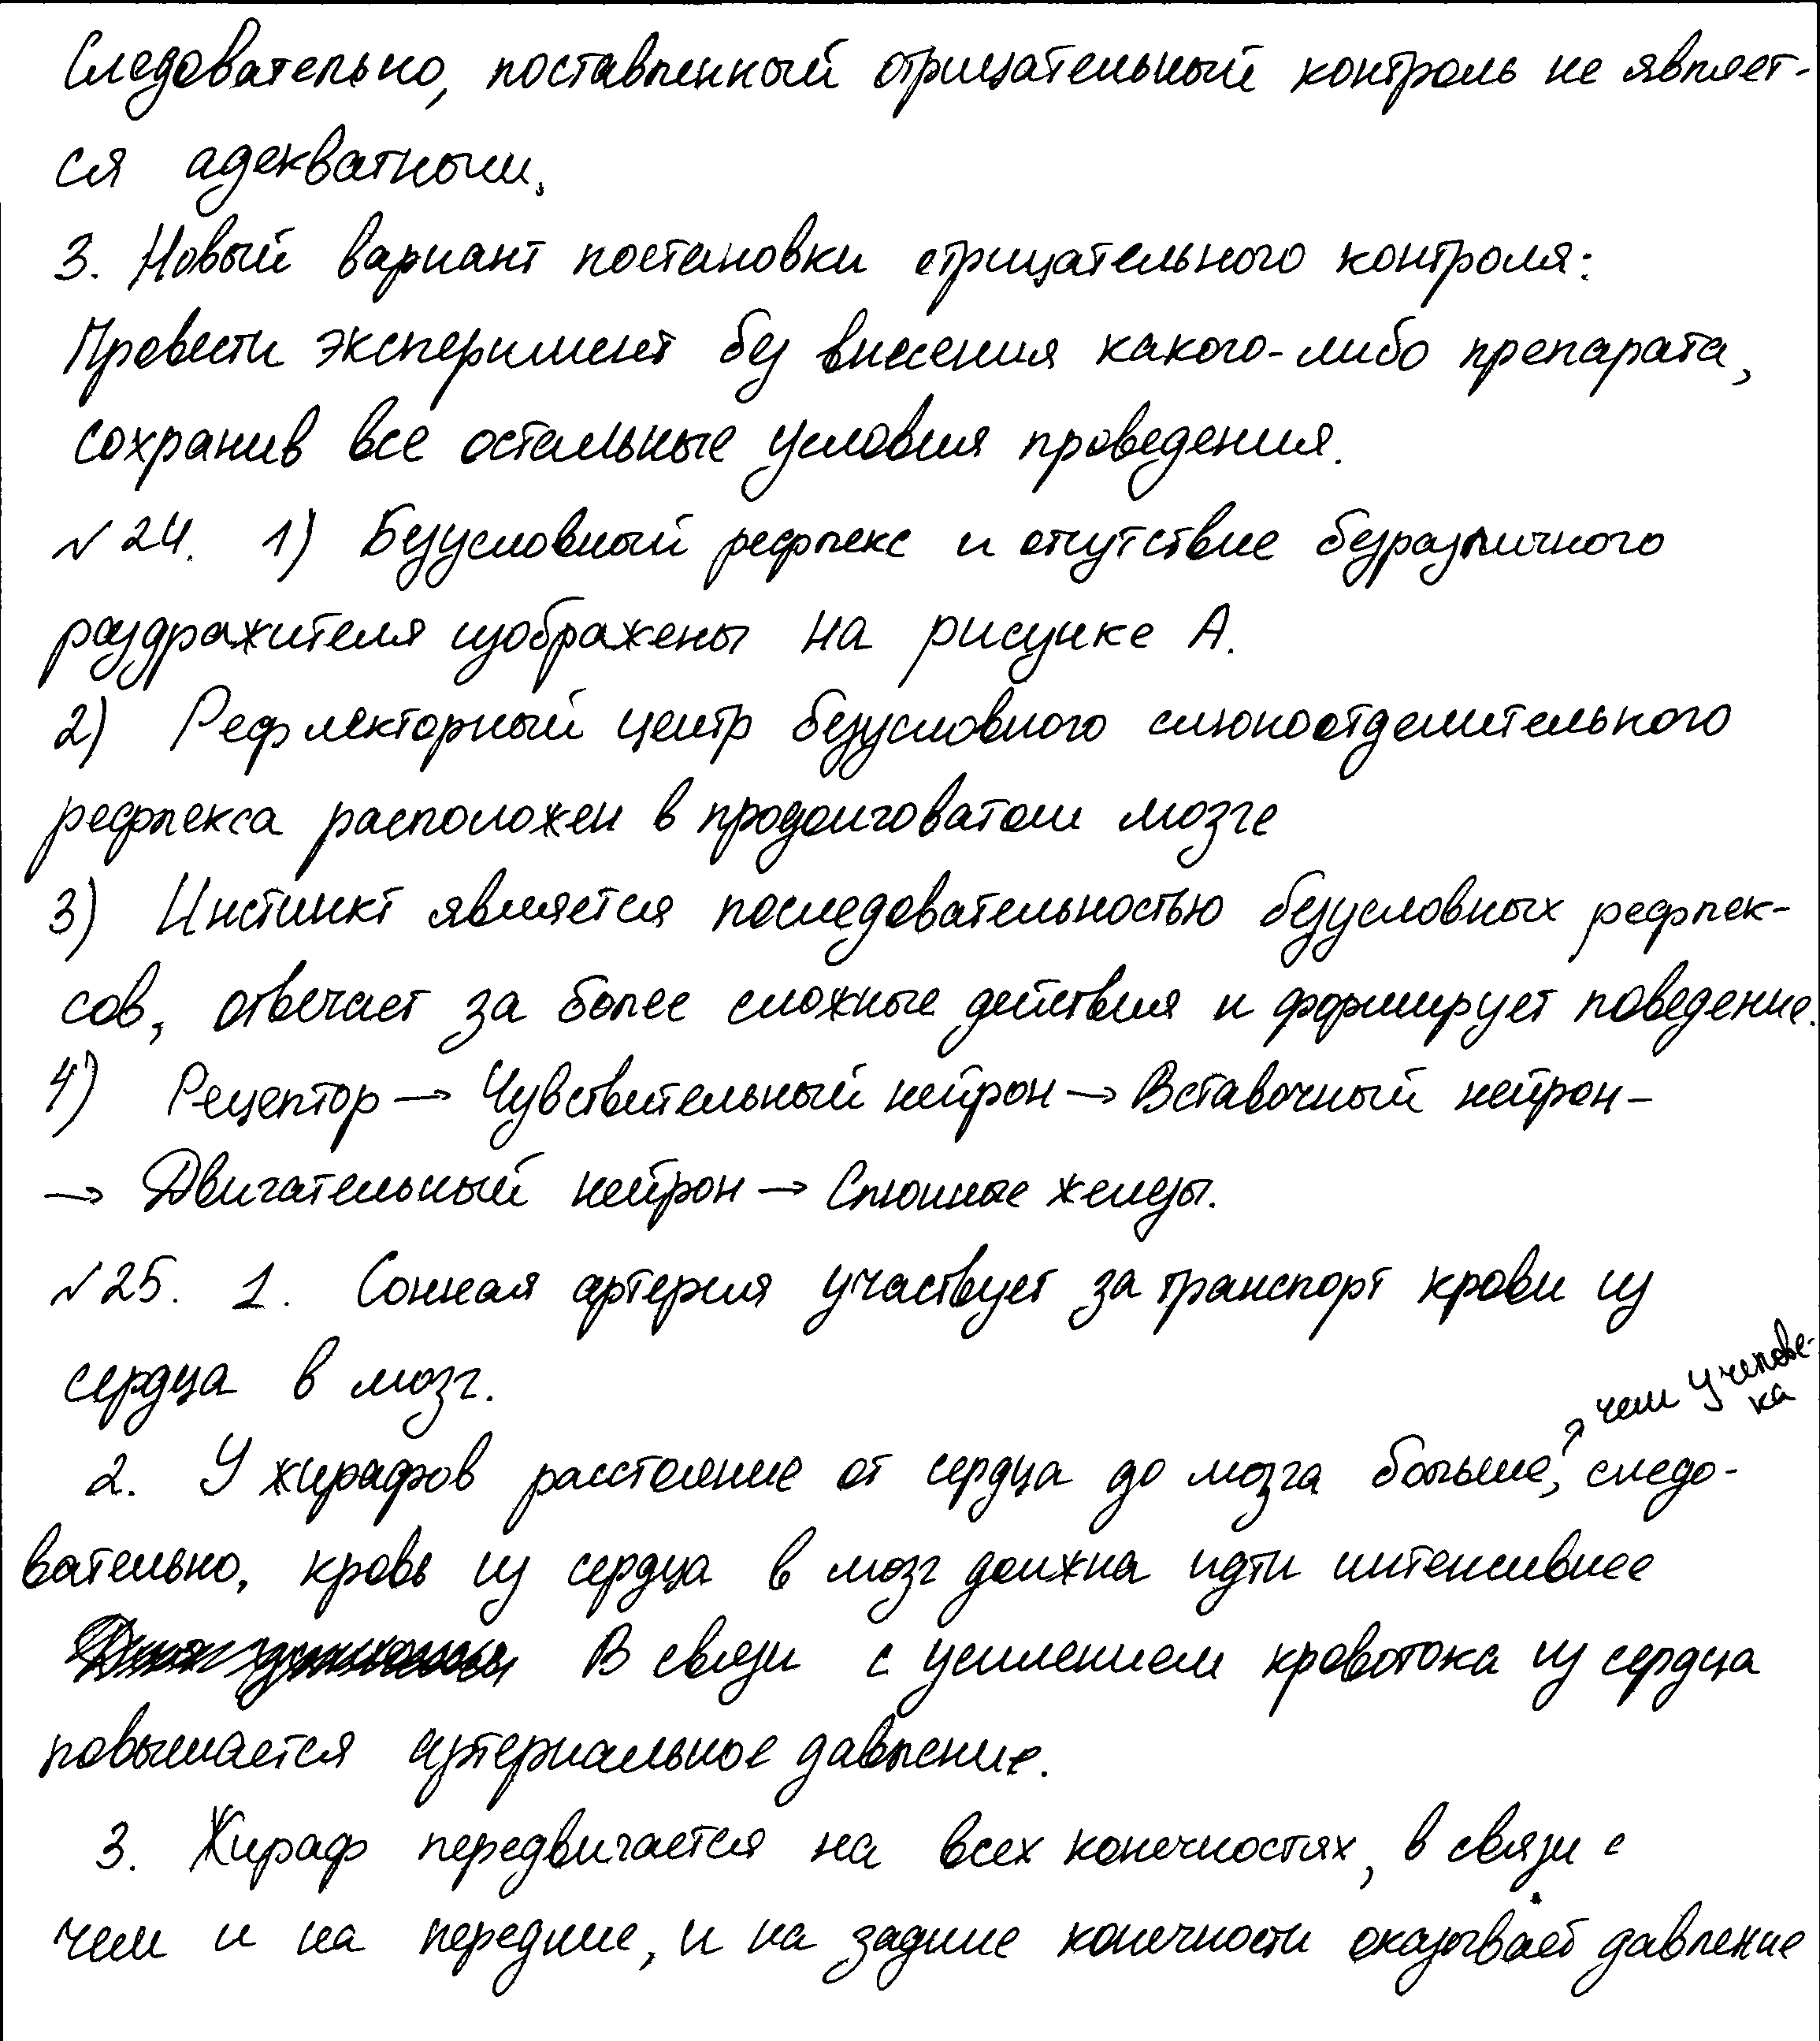 Следовательно, поставленный отрицательный контроль не являет-
ся адекватным.
3. Новый вариант постановки отрицательного контроля:
Провести эксперимент без внесения какого-либо препарата,
сохранив все остальные условия проведения.
№24. 1) Безусловный рефлекс и отсутствие безразличного
раздражителя изображены на рисунке А.
2) Рефлекторный центр безусловного слюноотделительного
рефлекса расположен в продолговатом мозге
3) Инстинкт является последовательностью безусловных рефлек-
сов, отвечает за более сложные действия и формирует поведение.
4) Рецептор → Чувствительный нейрон → Вставочный нейрон –
→ Двигательный нейрон → Слюнные железы.
№25. 1. Сонная артерия участвует за транспорт крови из
сердца в мозг.
чем у челове-
ка
2. У жирафов расстояние от сердца до мозга больше, следо-
вательно, кровь из сердца в мозг должна идти интенсивнее
В связи с усилением кровотока из сердца
повышается артериальное давление.
3. Жираф передвигается на всех конечностях, в связи с
чем и на передние, и на задние конечности оказывает давление